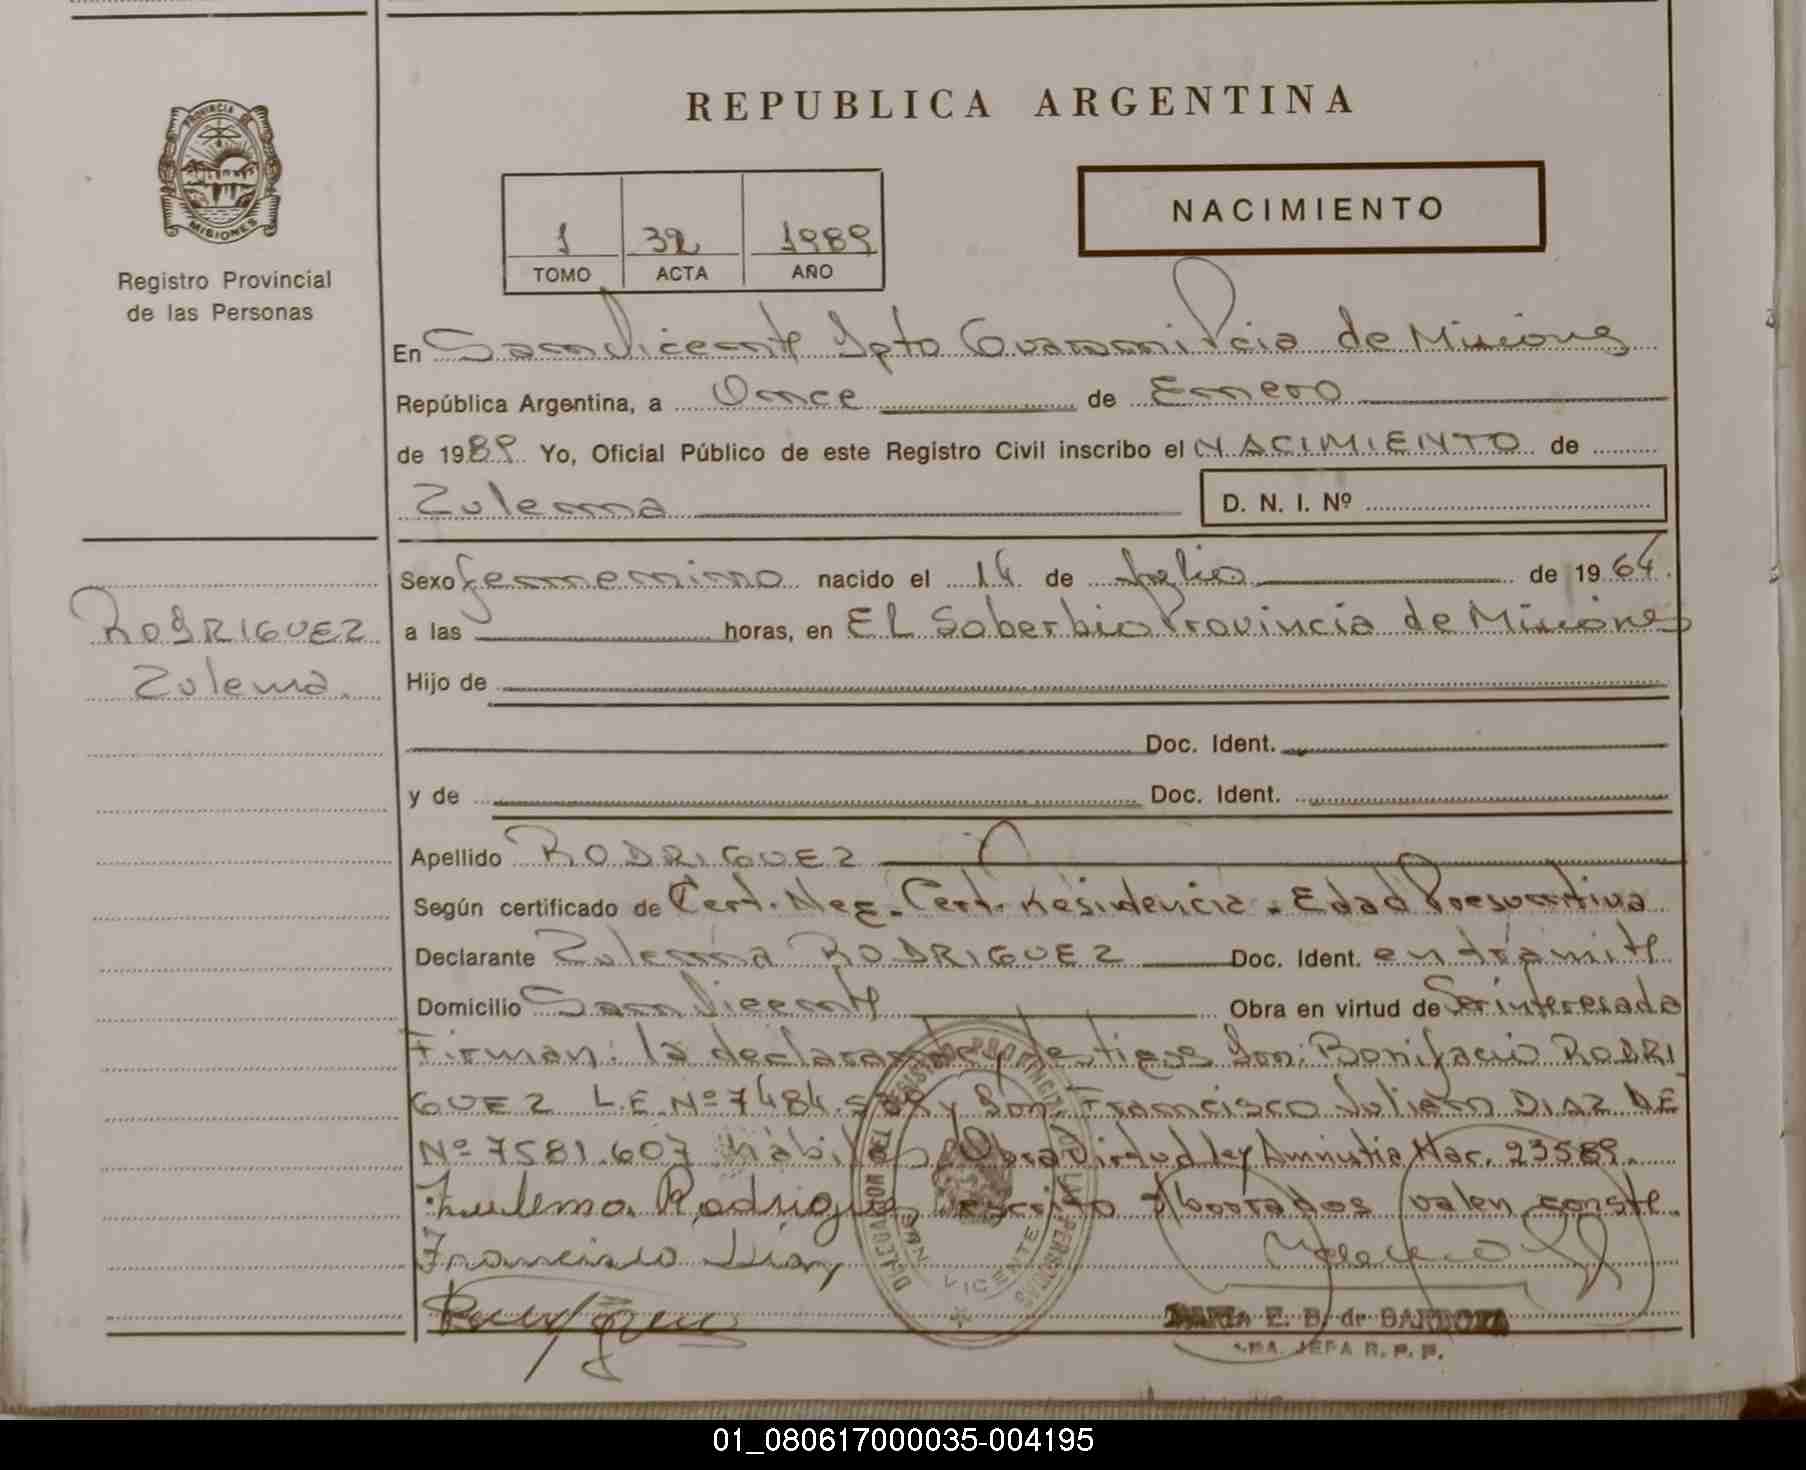 REPUBLICA ARGENTINA
PROVINCIA DE
MISIONES
Registro Provincial
de las Personas
1 32 1989
TOMO ACTA AÑO
NACIMIENTO
En San Vicente Dpto Guarani Pcia de Misiones
República Argentina, a Once de Enero
de 1989 Yo, Oficial Público de este Registro Civil inscribo el NACIMIENTO de
Zulema D. N. I. Nº
RODRIGUEZ
Zulema.
Sexo femenino nacido el 14 de Julio de 1964.
a las horas, en EL Soberbio Provincia de Misiones
Hijo de
Doc. Ident.
y de Doc. Ident.
Apellido RODRIGUEZ
Según certificado de Cert. Neg. Cert. Residencia - Edad Presuntiva
Declarante Zulema RODRIGUEZ Doc. Ident. en trámite
Domicilio San Vicente Obra en virtud de Ser interesada
Firman: la declarante y testigos Don: Bonifacio RODRI
GUEZ L.E. Nº 7484. y Don: Francisco Julian DIAZ DE
Nº 7581.607 hábiles Obra Virtud ley Amnistia Nac. 23589.
Zulema Rodriguez escrito s/borrados valen conste.
Francisco Diaz
VICENTE
MARIA E. B. de
JEFA R. P. P.
01_080617000035-004195